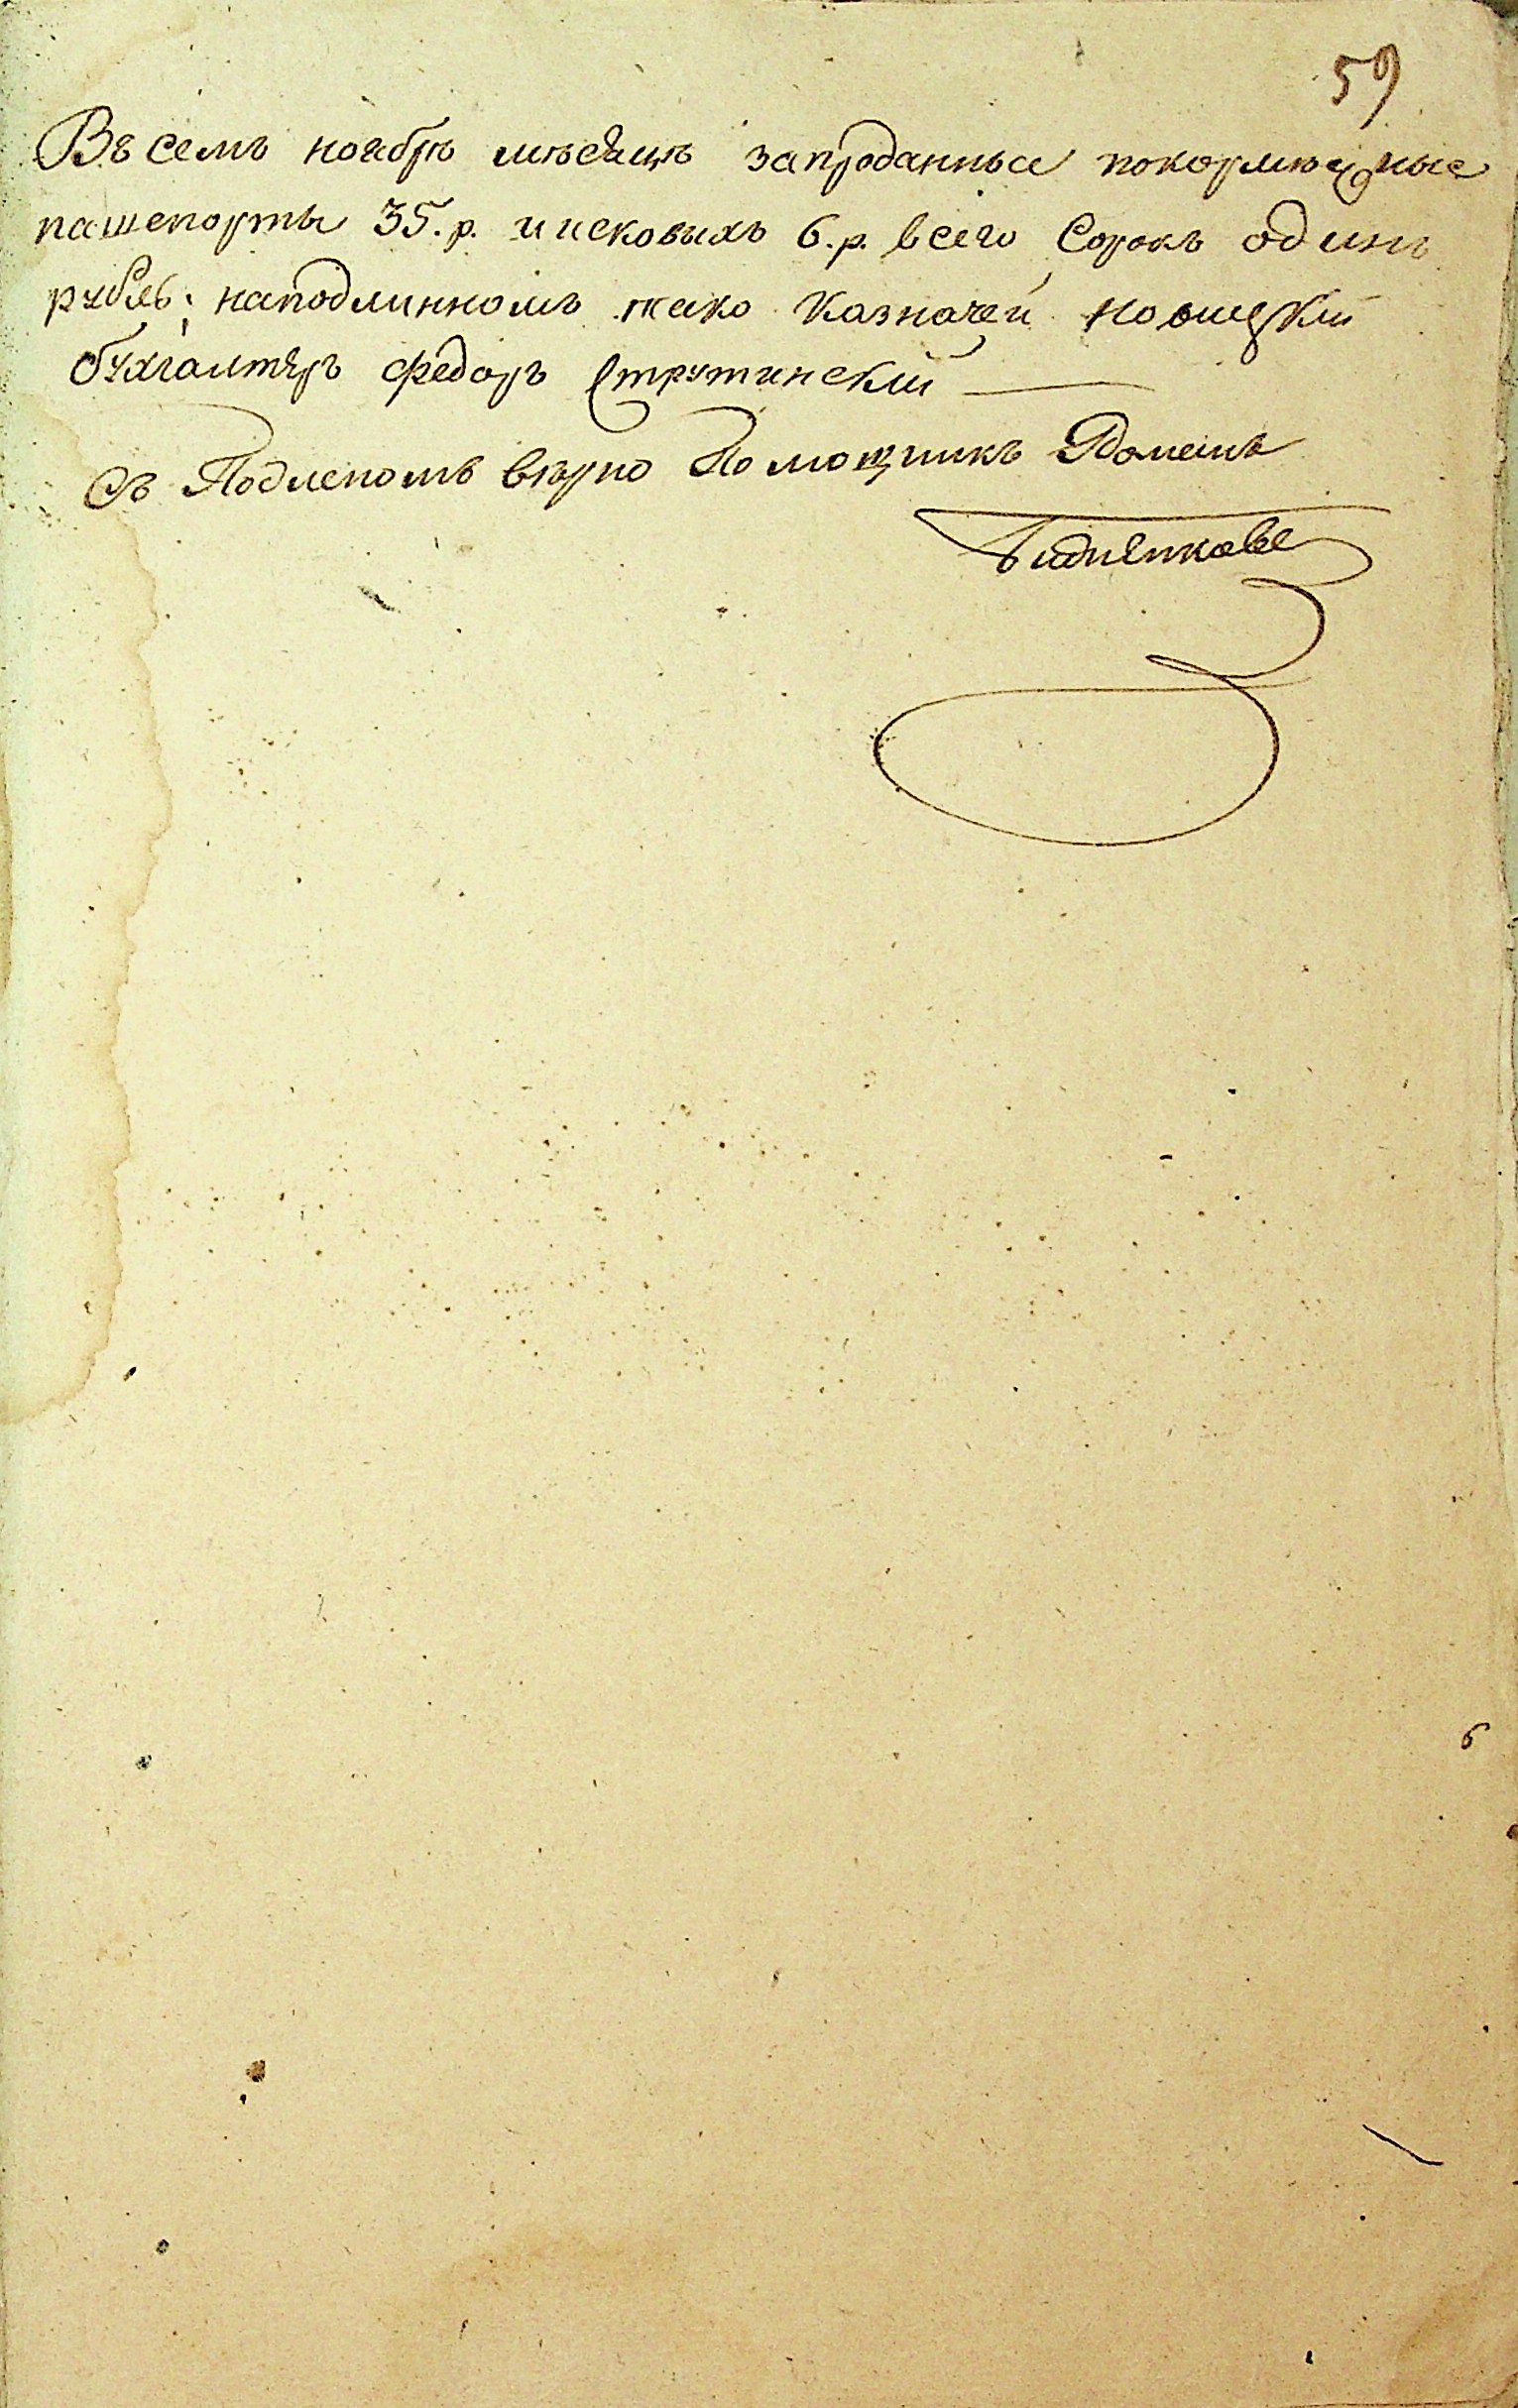 59
Въ семъ ноябрѣ мѣсяцѣ запроданные покормежные
пашепорты 35. р. и исковыхъ 6. р. всего Сорокъ одинъ
рубль; наподлинномъ тако Казначей новицкий
бухгалтеръ Федоръ Струтинский
Съ Подленомъ вѣрно Помощникъ